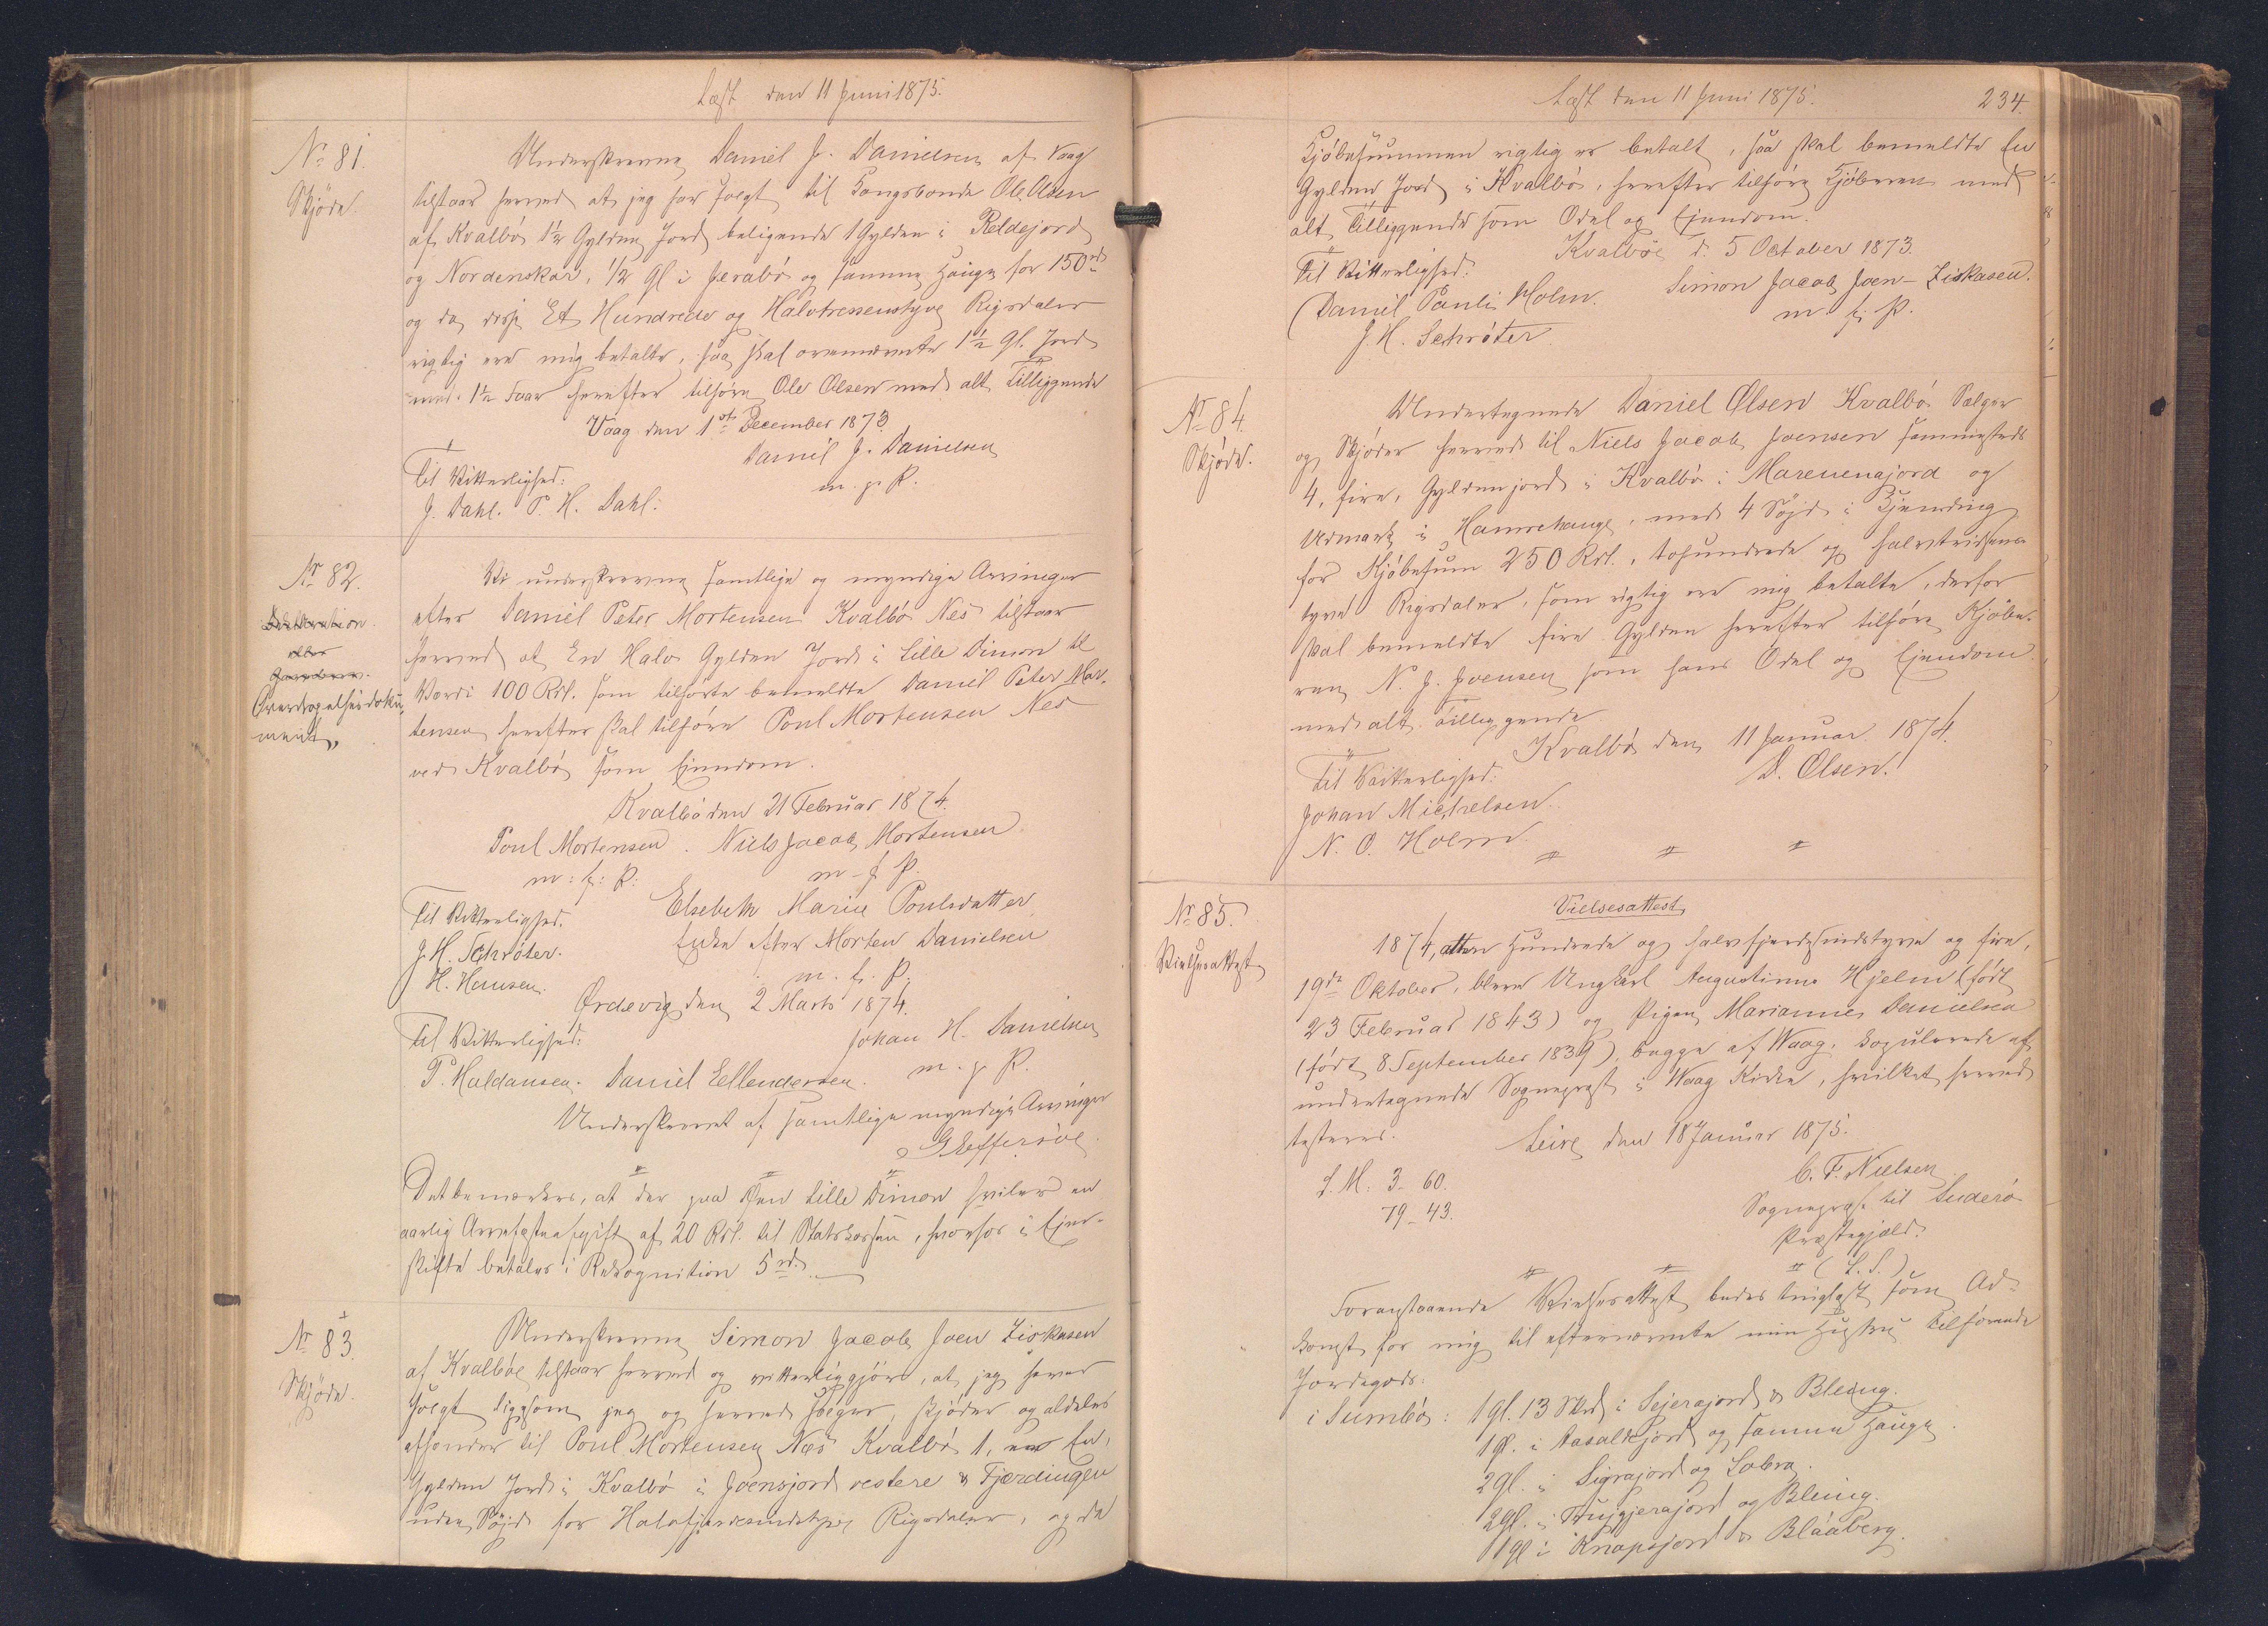 Læst den 11 Juni 1875.
No 81.
Skjöde.
Underskrevne Daniel J. Danielsen af Vaag
tilstaar herved at jeg har solgt til Kongsbonde Ole Olsen
af Kvalbö 1½ Gylden Jord beligende 1 Gylden i Reldejord
og Nordenskar, ½ Gl i Jerabö og samme Hauge for 150 rd
og da disse Et Hundrede og Halvtressenstyve Rigsdaler
rigtig ere mig betalte, saa skal ovennævnte 1½ Gl. Jord
med 1½ Faar herefter tilhöre Ole Olsen med alt Tilliggende
Vaag den 1st December 1873
Daniel J. Danielsen
m. p. P.
Til Vitterlighed:
J. Dahl. P. H. Dahl:
No 82.
Overdragelsesdoku
ment
Vi underskrevne samtlige og myndige Arvinger
efter Daniel Peter Mortensen Kvalbö Nes tilstaar
herved at En Halv Gylden Jord i Lille Dimon til
Værdi 100 Rd. som tilhörte bemeldte Daniel Peter Mor-
tensen herefter skal tilhöre Poul Mortensen Nes
ved Kvalbö som Eiendom.
Kvalbö den 21 Februar 1874.
Poul Mortensen. Niels Jacob Mortensen
m: f: P: m - f P.
Til Vitterlighed. Elsebeth Marie Poulsdatter
J. H. Schröter. Enke efter Morten Danielsen
H. Hansen. m. f. P.
Ördevig den 2 Marts 1874.
Til Vitterlighed: Johan H. Danielsen
P. Haldansen. Daniel Ellendersen. m. p P.
Underskrevet af samtlige myndige Arvinger
G Effersöe.
Det bemærkes, at der paa Öen Lille Dimon hviler en
aarlig Arvefæsteafgift af 20 Rd. til Statskassen, hvorfor i Ejer-
skifte betales i Rekognition 5 rd.
No 83.
Skjöde.
Underskrevne Simon Jacob Joen Ziskasen
af Kvalböe tilstaar herved og vitterliggjör, at jeg haver
solgt ligesom jeg og herved sælger, skjöder og aldeles
afhænder til Poul Mortensen Næs Kvalbö 1, En,
Gylden Jord i Kvalbö i Joensjord vestere & Fjerdingen
uden Söjd for Halvfjerdesindstyve Rigsdaler, og da
Læst den 11 Juni 1875. 234.
Kjöbesummen rigtig er betalt, saa skal bemeldte En
Gylden Jord i Kvalbö, herefter tilhöre Kjöberen med
alt Tilliggende som Odel og Ejendom.
Kvalböe d. 5 October 1873.
Til Vitterlighed: Simon Jacob Joen - Ziskasen.
Daniel Pauli Holm. m f. P.
J. H. Schröter.
No 84.
Skjöde.
Undertegnede Daniel Olsen Kvalbö Sælger
og Skjöder herved til Niels Jacob Joensen sammesteds
4, fire, Gyldenjord i Kvalbö i Mareuenajord og
Udmark i Hamrehauge, med 4 Söjd i Fjerding
for Kjöbesum 250 Rd., tohundrede og halvtridsens-
tyve Rigsdaler, som rigtig ere mig betalte, derfor
skal bemeldte fire Gylden herefter tilhöre Kjöbe-
ren N. J. Joensen som hans Odel og Ejendom
med alt Tilliggende.
Kvalbö den 11 Januar 1874.
Til Vitterlighed: D. Olsen.
Johan Michelsen.
N. O. Holm.
No 85.
Vielsesattest
Vielsesattest
1874, atten Hundrede og halvfjerdsindstyve og fire,
19de Oktober, bleve Ungkarl Augustinus Hjelm (födt
23 Februar 1843) og Pigen Marianne Danielsen
(födt 8 September 1839), begge af Waag, kopulerede af
undertegnede Sognepræst i Waag Kirke, hvilket herved
testeres.
Leire den 18 Januar 1875.
L. M. 3 - 60. C. F. Nielsen
79 - 43. Sognepræst til Suderö
Præstegjeld.
(L. S.)
Foranstaaende Vielsesattest bedes tinglæst som Ad-
komst for mig til efternævnte min Hustru Tilhörende
Jordegods:
i Sumbö: 1 gl. 13 Skd i Sejerajord & Bleing.
1 gl. i Aasaldejord og samme Hauge.
2 gl. i Sigrajord og Lobra.
2 gl. i Hujgjerajord og Bleing.
1 gl i Knapsjord & Blaaberg.